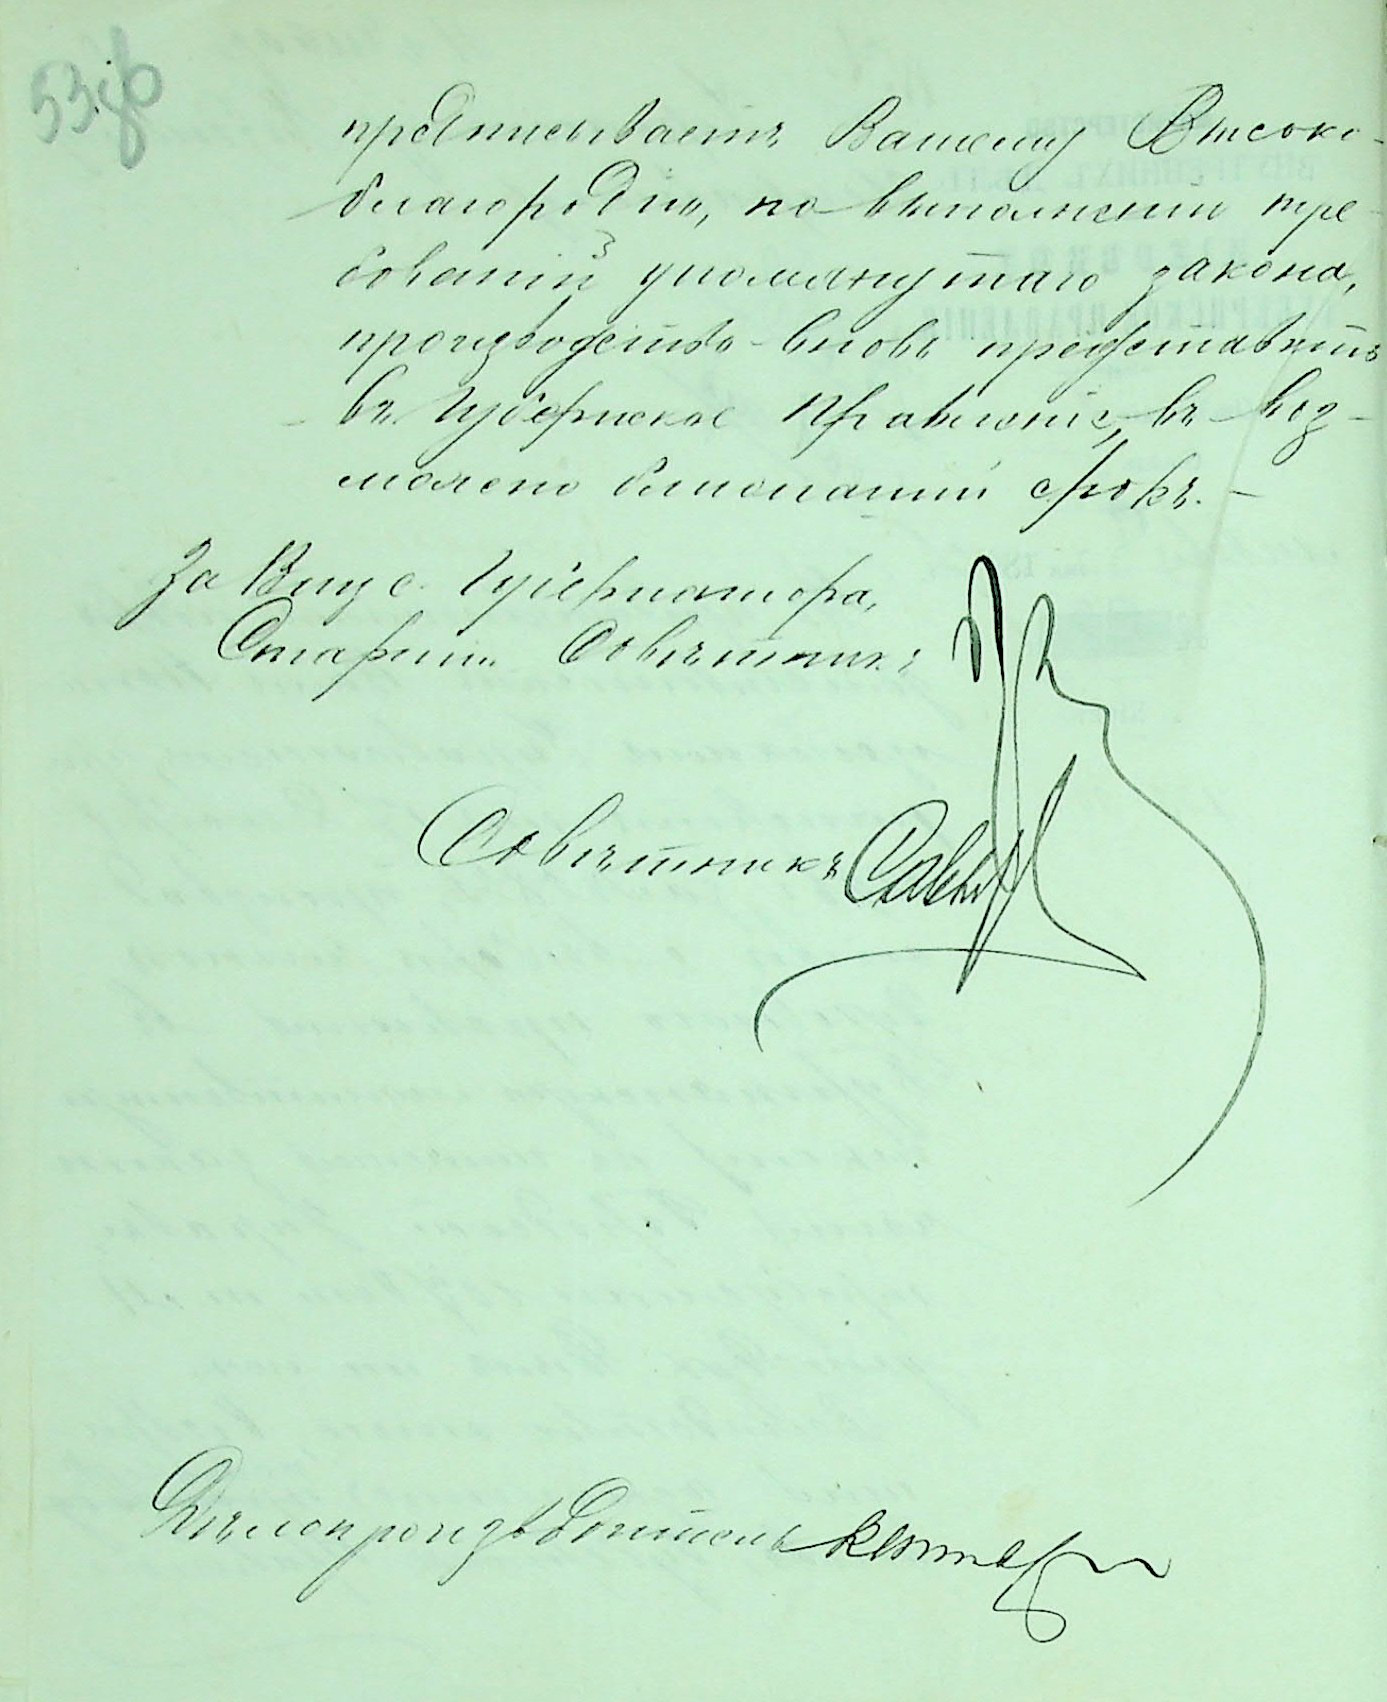 53 об
предписываетъ Вашему Высоко-
благородію, по выполненіи тре-
бованій упомянутаго закона,
производство вновь представить
въ Губернское Правленіе, въ воз-
можно ближайшій срокъ.
За Вице Губернатора,
Старшій Совѣтникъ
Совѣтникъ
Дѣлопроизводитель